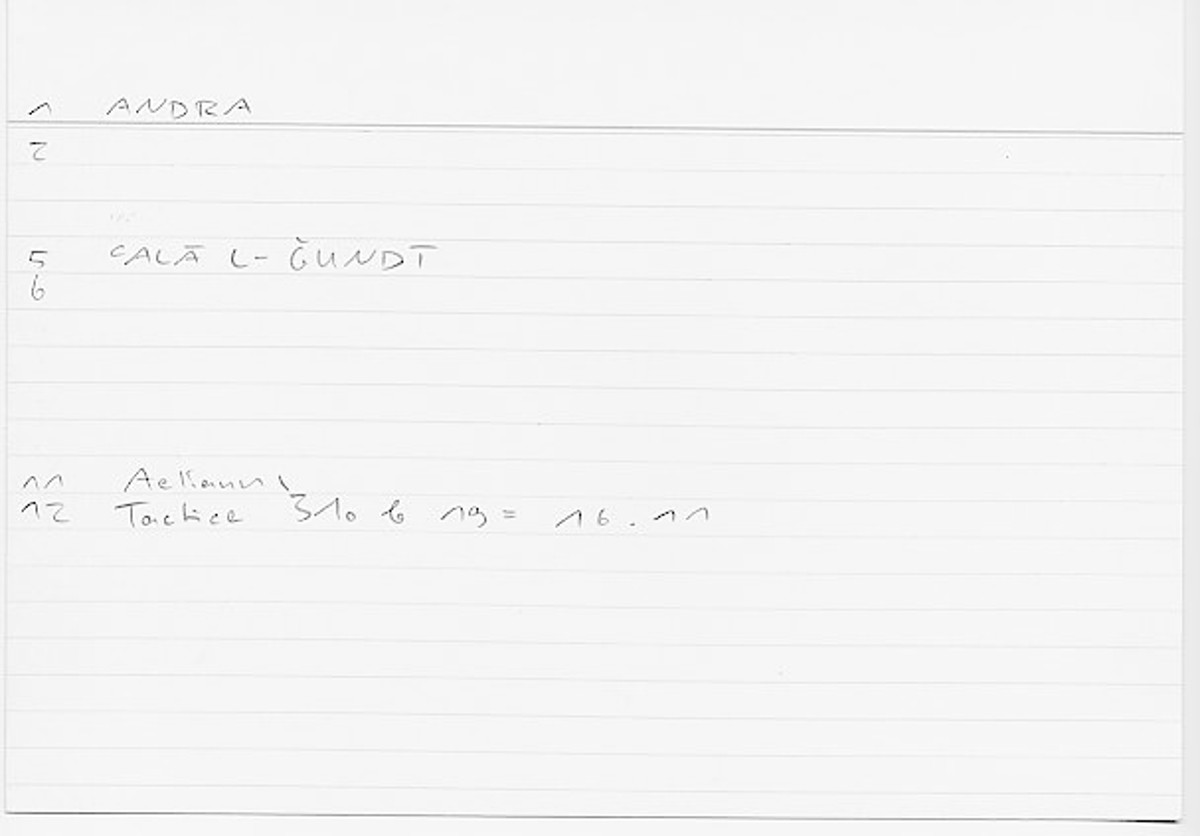 1 ANDRA
2
5 ᶜALĀ L-ǦUNDĪ
6
11 Aelianus
12 Tactica 310 b 19 = 16.11